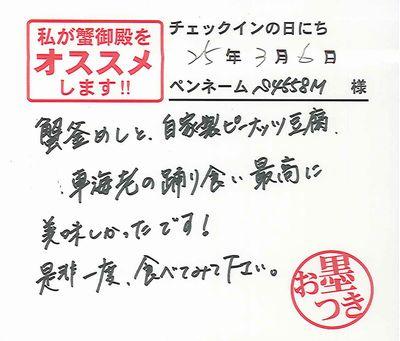 私が蟹御殿を
オススメ
します!!
チェックインの日にち
25年3月6日
ペンネーム S4558M 様
蟹釜めしと、自家製ピーナッツ豆腐、
車海老の踊り食い最高に
美味しかったです!
是非一度、食べてみて下さい。
お墨つき